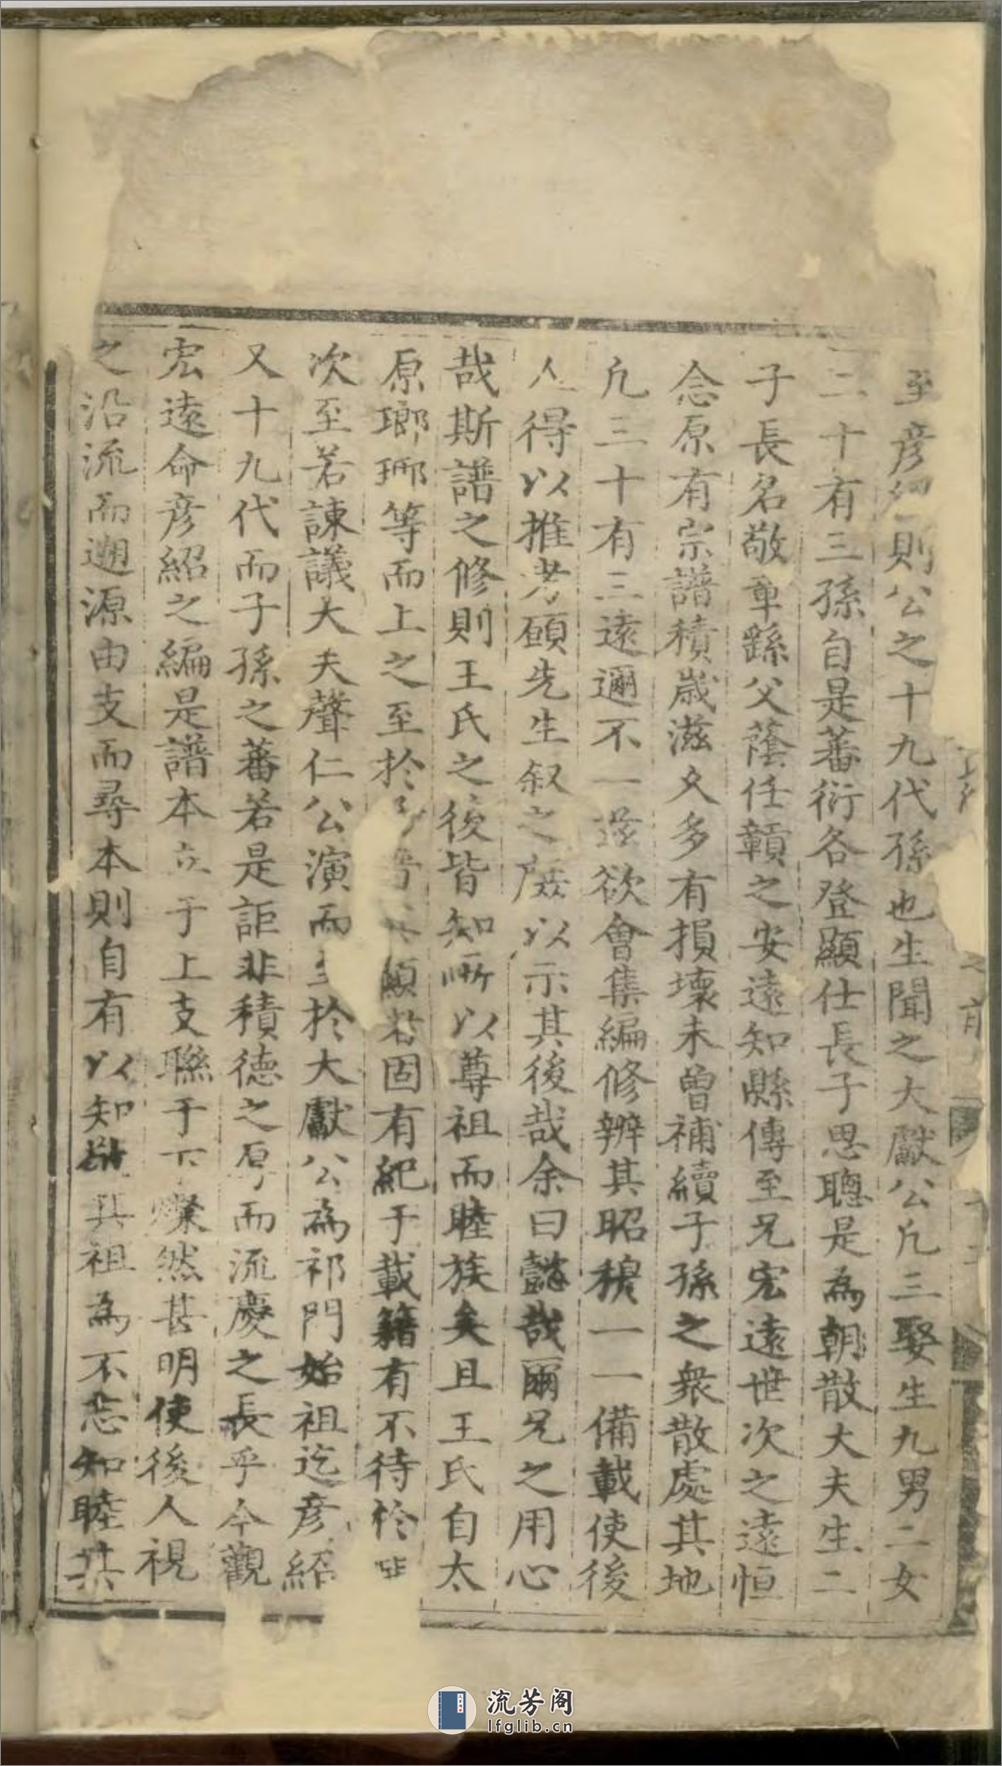 至彦紹則公之十九代孫也生聞之大獻公凢三娶生九男二女
二十有三孫自是蕃衍各登顯仕長子思聰是為朝散大夫生二
子長名敬車繇父蔭任贑之安遠知縣傳至兄宏遠世次之遠恒
念原有宗譜積歲滋久多有損壞未曾補續子孫之衆散處其地
凢三十有三逺邇不一兹欲會集編修辨其昭穆一一備載使後
人得以推考碩先生叙之以示其後哉余曰懿哉爾兄之用心
哉斯譜之修則王氏之後皆知所以尊祖而睦族矣且王氏自太
原瑯琊等而上之至於晉顯者固有紀于載籍有不待於
次至若諫議大夫聲仁公演而至於大獻公為祁門始祖迄彦紹
又十九代而子孫之蕃若是詎非積德之厚而流慶之長乎今觀
宏遠命彦紹之編是譜本立于上支聯于下燦然甚明使後人視
之沿流而遡源由支而尋本則自有以知敬其祖為不忘知睦其
流芳阁
lfglib.cn